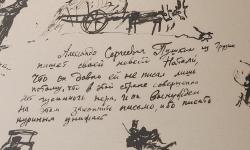 Александр Сергеевич Пушкин из Грузии
пишет своей невесте Натали,
что он давно ей не писал лишь
потому, что в этой стране совершенно
нет гусиного пера, и он вынужден
на этом закончить письмо, ибо писать
куриным унижает